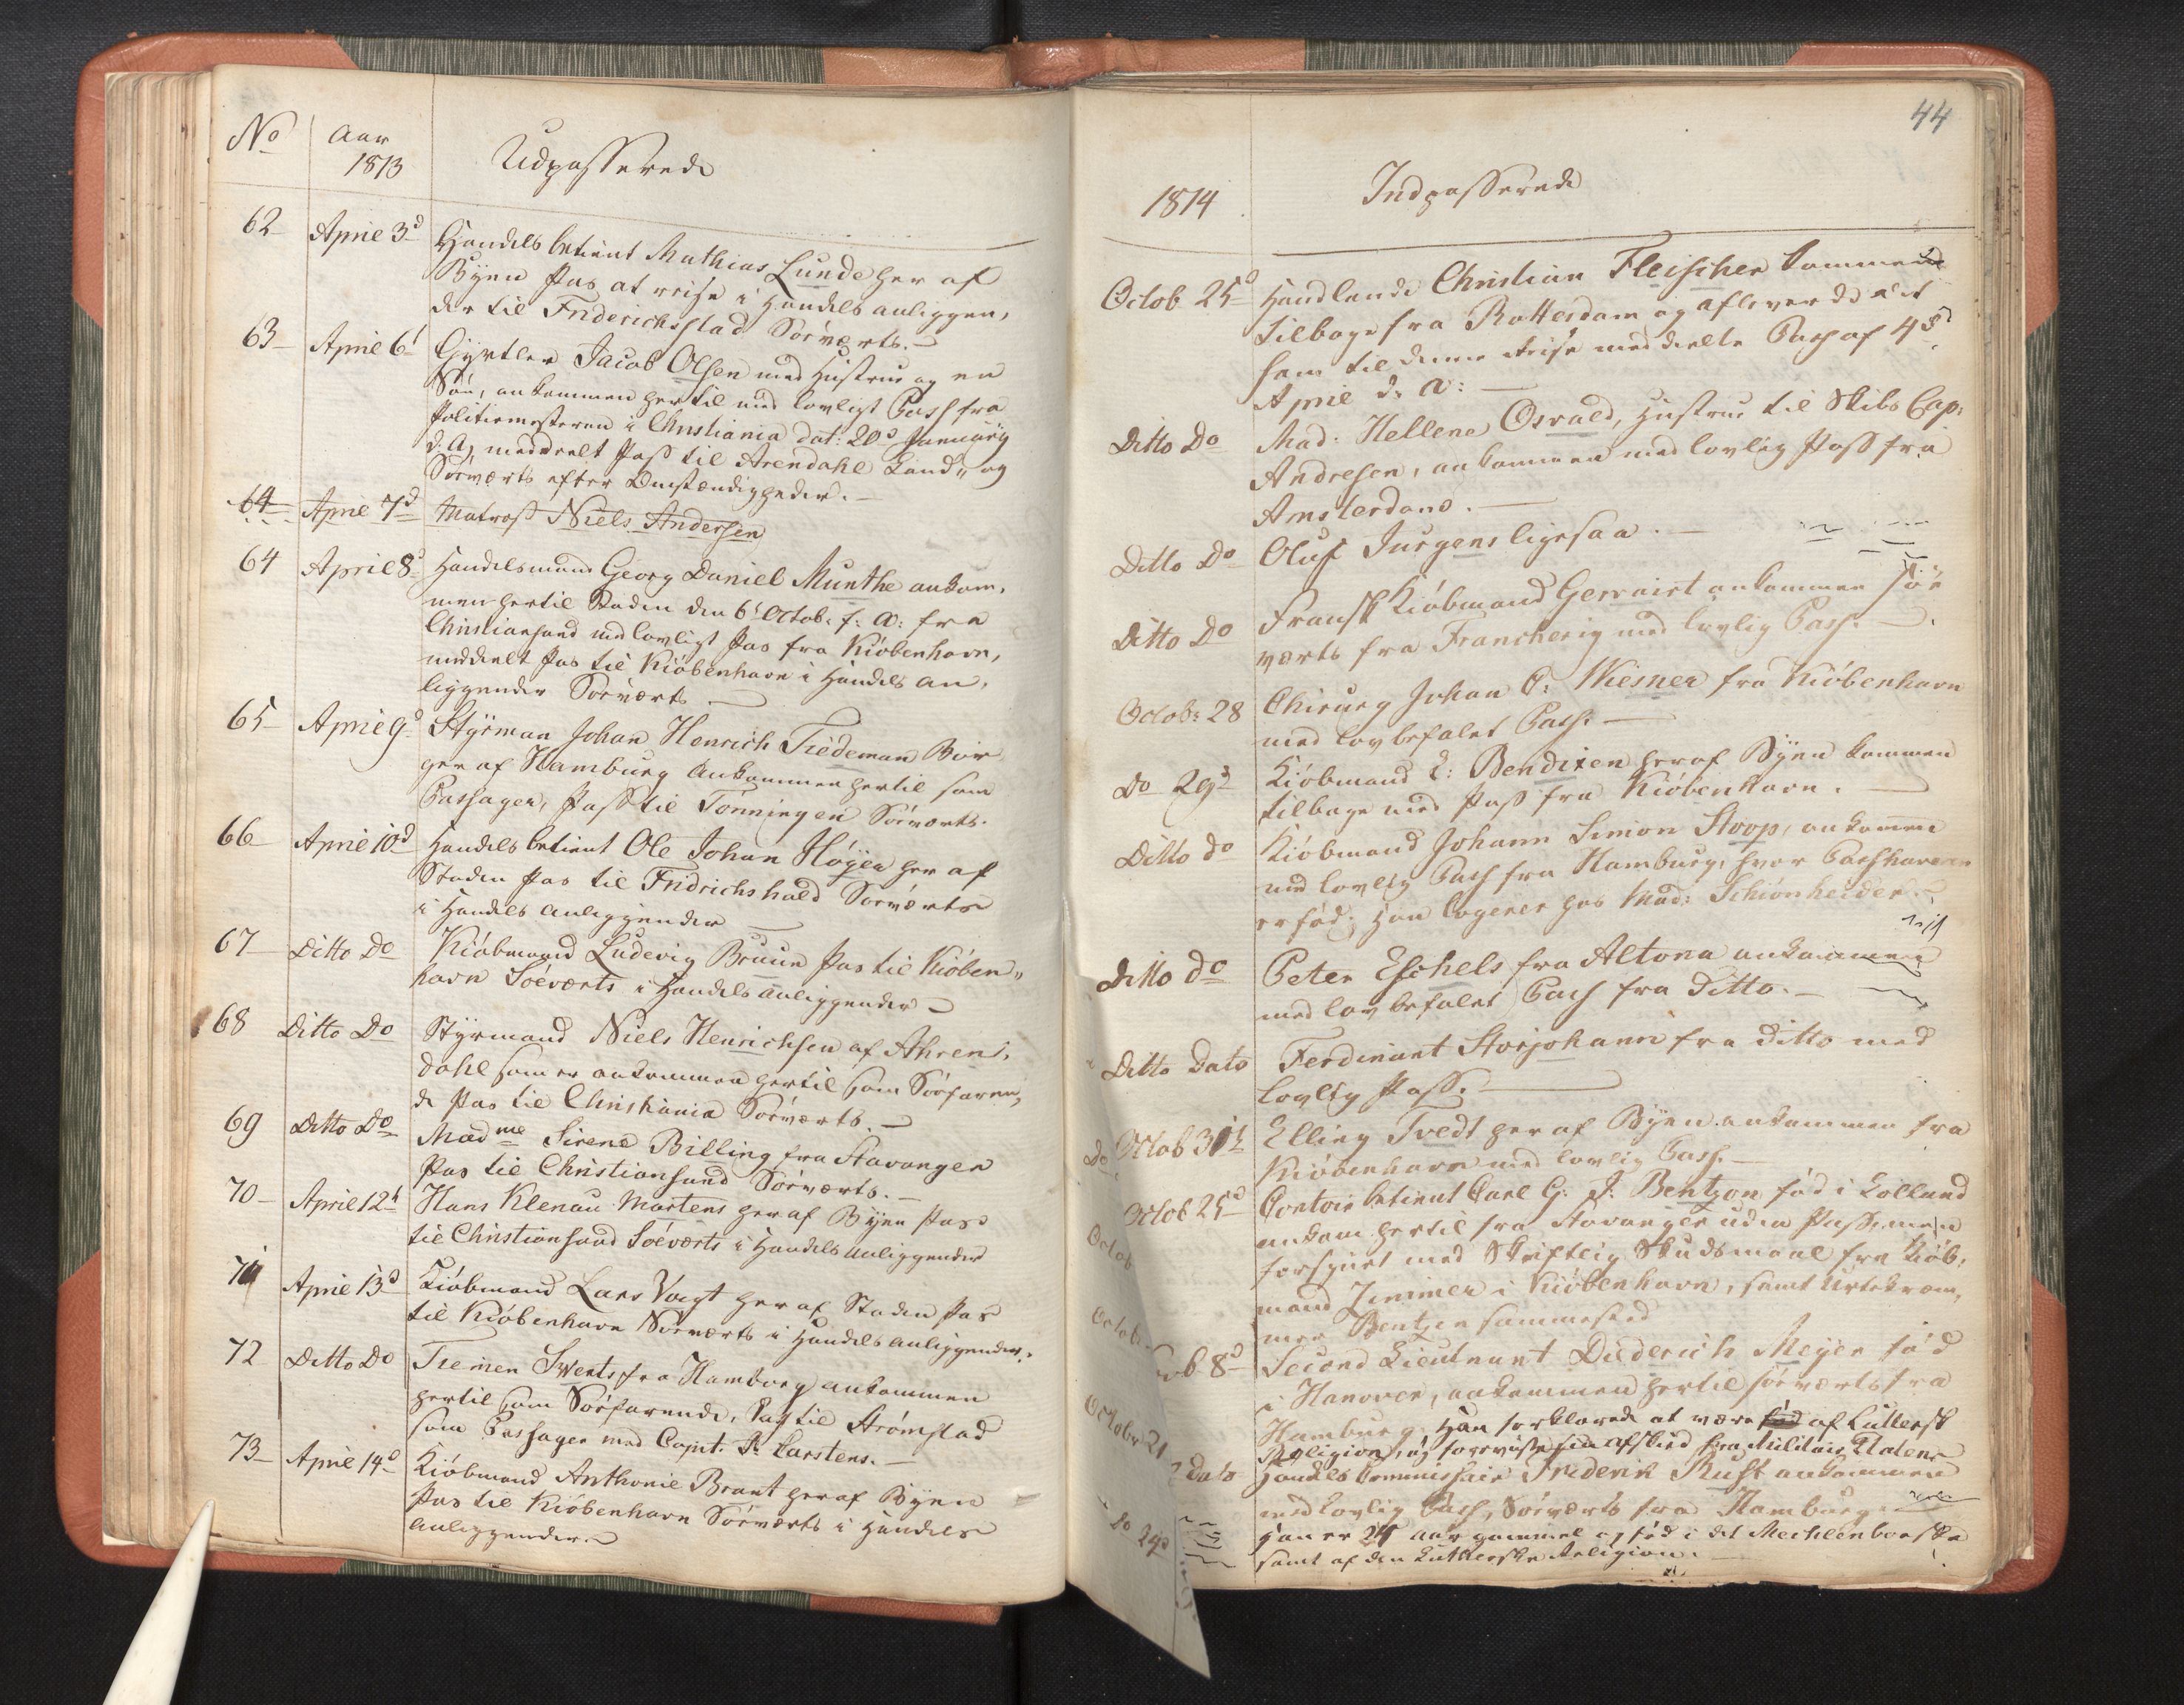 No
Aar
1813
Udpasserede
62
April 3d
Handelsbetient Mathias Lunde her af
Byen Pas at reise i Handels anliggen,
der til Friderichsstad Söeværts.
63
April 6t
Gjertler Jacob Olsen med Hustrue og en
Sön, ankommen hertil med lovligt Pass fra
Politiemesteren i Christiania dat: 20d Januarÿ
d. A, meddeelt Pass til Arendahl Land„ og
Söeværts efter Omstændigheder.
64
April 7d
Matros Niels Andersen
64
April 8d
Handelsmand Georg Daniel Munthe ankom,
men hertil Staden den 6t Octob: f: A: fra
Christiansand med lovligt Pas fra Kiöbenhavn,
meddeelt Pas til Kiöbenhavn i Handels an,
liggender Söeværts
65
April 9d
Styrman Johan Henrich Tiedeman Bor
ger af Hamburg Ankommen hertil som
Passager, Pass til Tönningen Söeværts.
66
April 10d
Handelsbetient Ole Johan Höyer her af
Staden Pas til Fridrichshald Söeværts
i Handels Anliggender
67
Ditto Do
Kiöbmand Ludevig Bruun Pas til Kiöben„
havn Söeværts i Handels Anliggender
68
Ditto Do
Styrmand Niels Henrichsen af Ahren,
dahl som er ankommen hertil som Söefaren,
de Pas til Christiania Söeværts.
69
Ditto Do
Madme Sirene Billing fra Stavanger
Pas til Christiansand Söeværts.
70
April 12t
Hans Klenau Martens her af Byen Pas
til Christiansand Söeværts i Handels Anliggender
71
April 13d
Kiöbmand Lars Vogt her af Staden Pas
til Kiöbenhavn Söeværts i Handels Anliggender.
72
Ditto Do
Tiemen Swerts fra Hamborg ankommen
hertil som Söefarende, Pas til Strömstad
som Passager med Capit. P. Carstens.
73
April 14d
Kiöbmand Anthonie Brant her af Byen
Pas til Kiöbenhavn Söeværts i Handels
Anliggender
44
1814
Indpasserede
Octob 25d
Handlende Christian Fleischer kommen
tilbage fra Rotterdam og afleverede det
ham til denne Reise meddeelte Pass af 4d
April d: A:
Ditto Do
Mad: Hellene Osvald, Hustrue til Skibs Cap:
Andresen, ankommen med lovlig Pass fra
Amsterdam.
Ditto Do
Oluf Jurgens ligesaa.
Ditto Do
Fransk Kiöbmand Gervaist ankommen söe
værts fra med lovlig Pass.
Octob: 28
Chirurg Johan C: Wiesner fra Kiöbenhavn
med lovbefalet Pass.
Do 29d
Kiöbmand L: Bendixen her af Byen kommen
tilbage med Pass fra Kiöbenhavn.
Ditto do
Kiöbmand Johann Simon Stoop, ankommen
med lovlig Pass fra Hamburg, hvor Passhaveren
er föd; Han logerer hos Mad: Schiönheider.
Ditto do
Peter Eschels fra Altona ankommen
med lovbefalet Pass fra Ditto.
Ditto Dato
Ferdinant Storjohann fra Ditto med
lovlig Pass.
Octob 31t
Elling Tvedt her af Byen ankommen fra
Kiöbenhavn med lovlig Pass.
Octob 25d
Contoir betient Carl G: J: Bentzon föd i Lolland
ankom hertil fra Stavanger uden Pass, men
forsynet med Skriftlig Skudsmaal fra Kiöb,
mand Zimmer i Kiöbenhavn, samt Urtekræm,
mer Bentzen sammested
8d
Second Lieutnant Diederich Meyer föd
i Hanover, ankommen hertil söeværts fra
Hamburg, Han forklarede at være föd af Luttersk
Religion, og foreviste sin afskeed fra Militair Etaten
Dato
Handels Commissair Friderik Rust ankommen
med lovlig Pass, Söeværts fra Hamburg.
Han er 24 Aar gammel og föd i det Mechlenborgske
samt af den Lutherske Religion.
Octob
Octob
Octobr 21
Do 29d